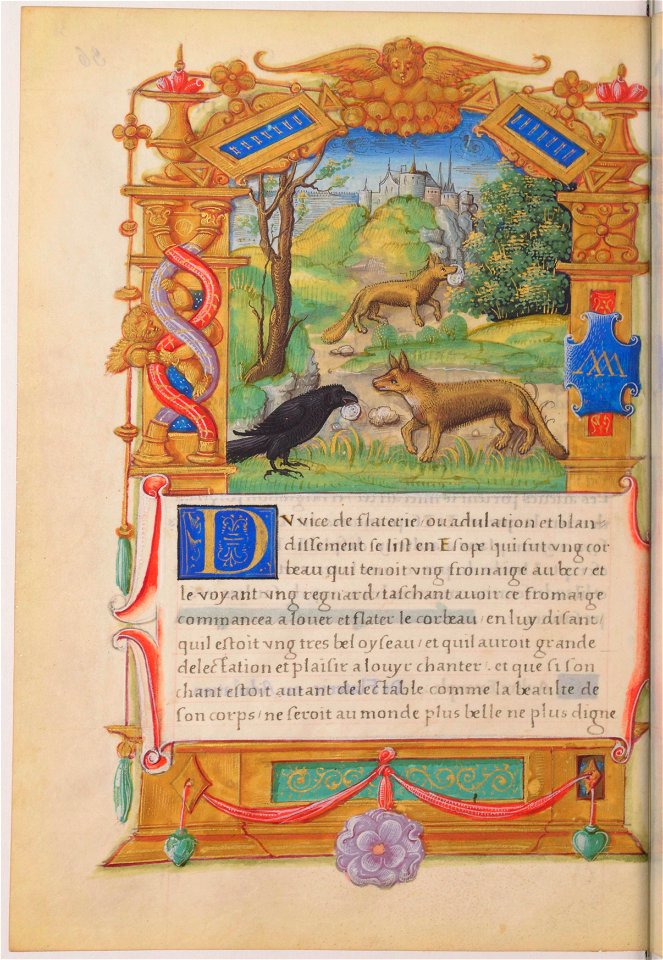 DV vice de flaterie / ou adulation et blan
dissement se list en Esope qui fut vng cor
beau qui tenoit vng fromaige au bec / et
le voyant vng regnard / taschant auoir ce fromaige
commancea a louer et flater le corbeau / en luy disant /
quil estoit vng tres bel oyseau / et quil auroit grande
delectation et plaisir a louyr chanter . et que si son
chant estoit autant delectable comme la beaulte de
son corps / ne seroit au monde plus belle ne plus digne